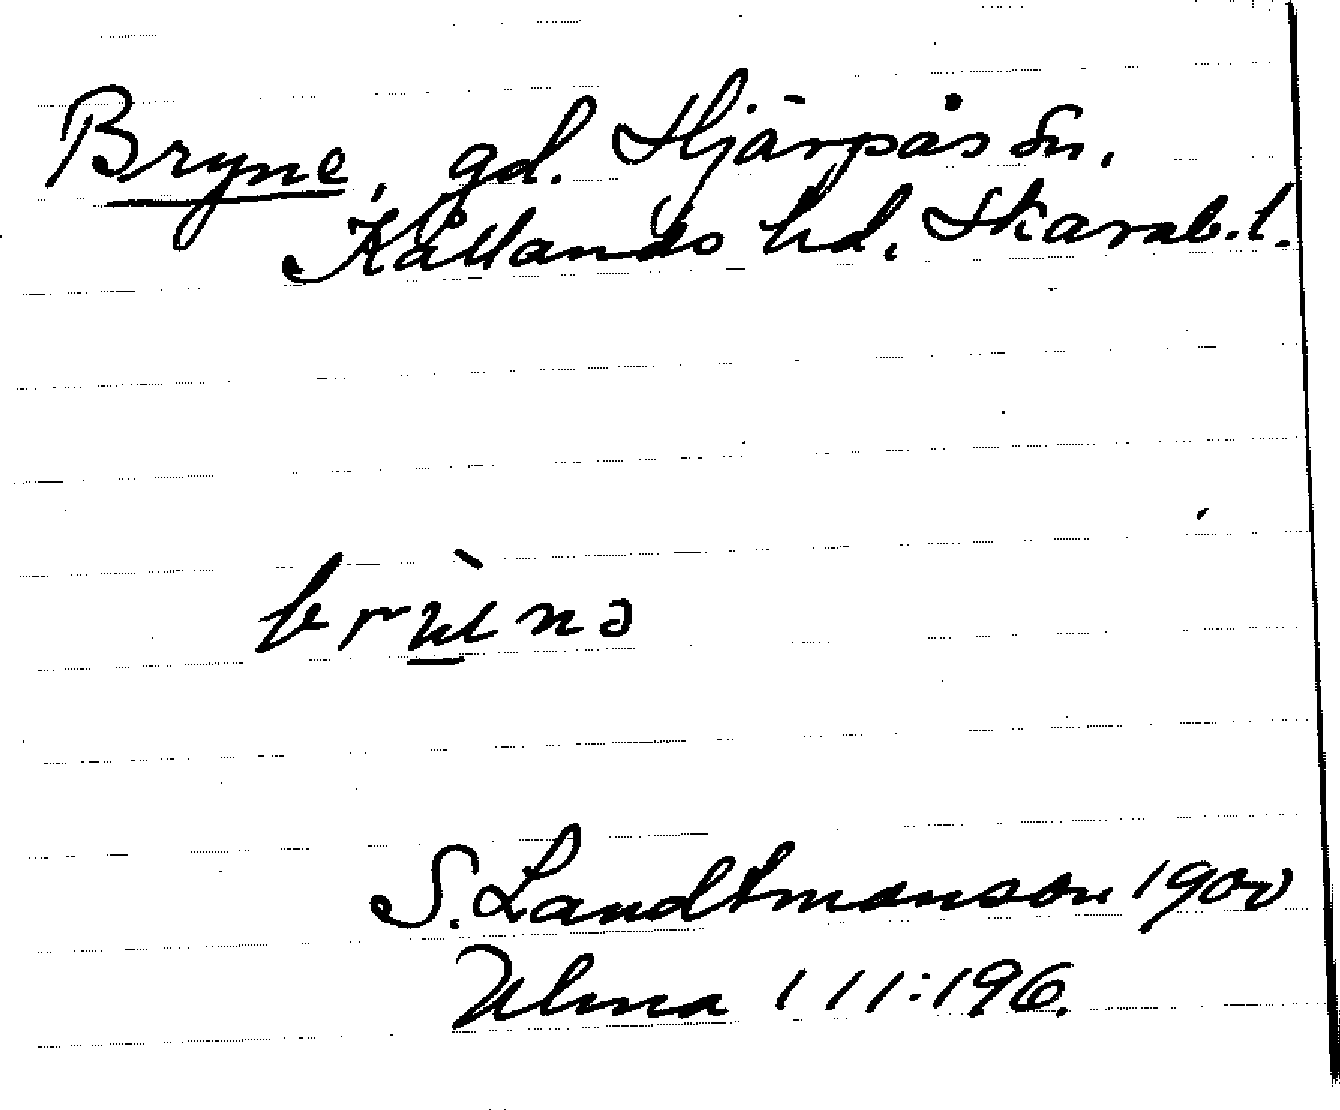 Bryne, gd. Hjärpås sn.
Kållands hd, Skarab.l.
brỳ̠nə
S. Landtmanson 1900
Ulma 111:196.